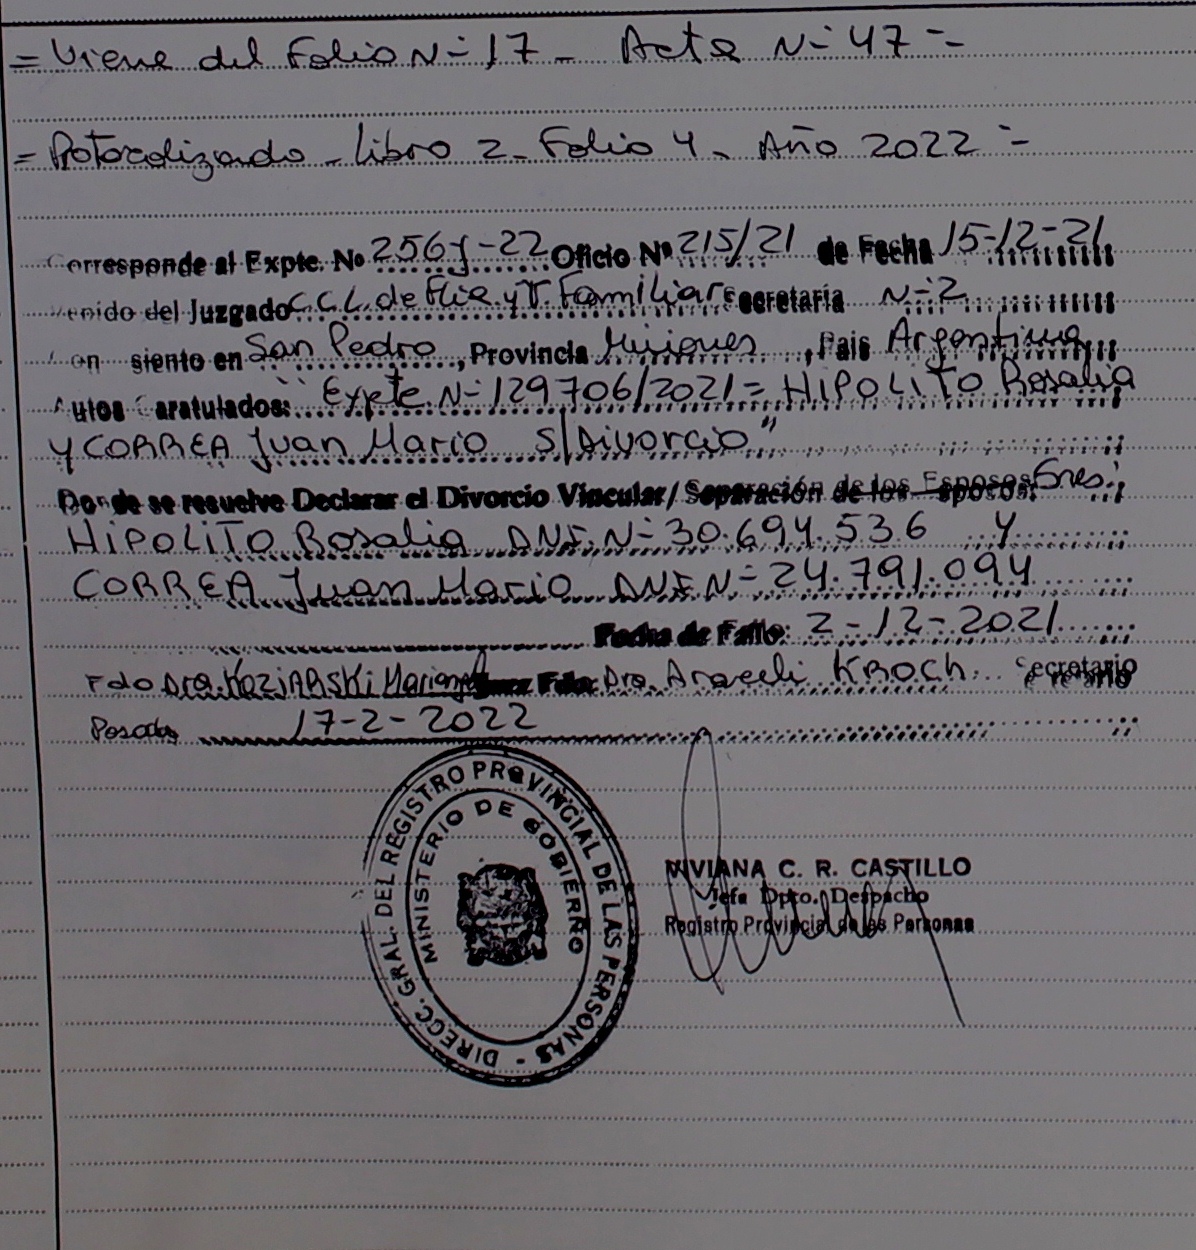 = Viene del Folio N= 17 - Acta N= 47 =-
= Protocolizado - Libro 2 - Folio 4 - Año 2022 =-
Corresponde al Expte. No 256 -22 Oficio Nº 215/21 de Fecha 15-12-21
venido del Juzgado C.C.L. de Flia. y V. Familiar Secretaria N=2
Con siento en San Pedro, Provincia Misiones, Pais Argentina
Autos Caratulados: "Expte. N= 129706/2021= HIPOLITO Rosalia
Y CORREA Juan Mario S/Divorcio"
Donde se resuelve Declarar el Divorcio Vincular/ Separación de los Esposos: Sres:
HIPOLITO Rosalia DNI. N= 30.694.536 y
CORREA Juan Mario DNI N= 24.791.094
Fecha de Fallo: 2-12-2021
Fdo Dra. KOZIARSKI Mariana Juez Fdo: Dra. Araceli KROCH. Secretario
Posadas 17-2-2022
DIRECC. GRAL. DEL REGISTRO PROVINCIAL DE LAS PERSONAS -
MINISTERIO DE GOBIERNO
VIVIANA C. R. CASTILLO
Jefa Dpto. Despacho
Registro Provincial de las Personas